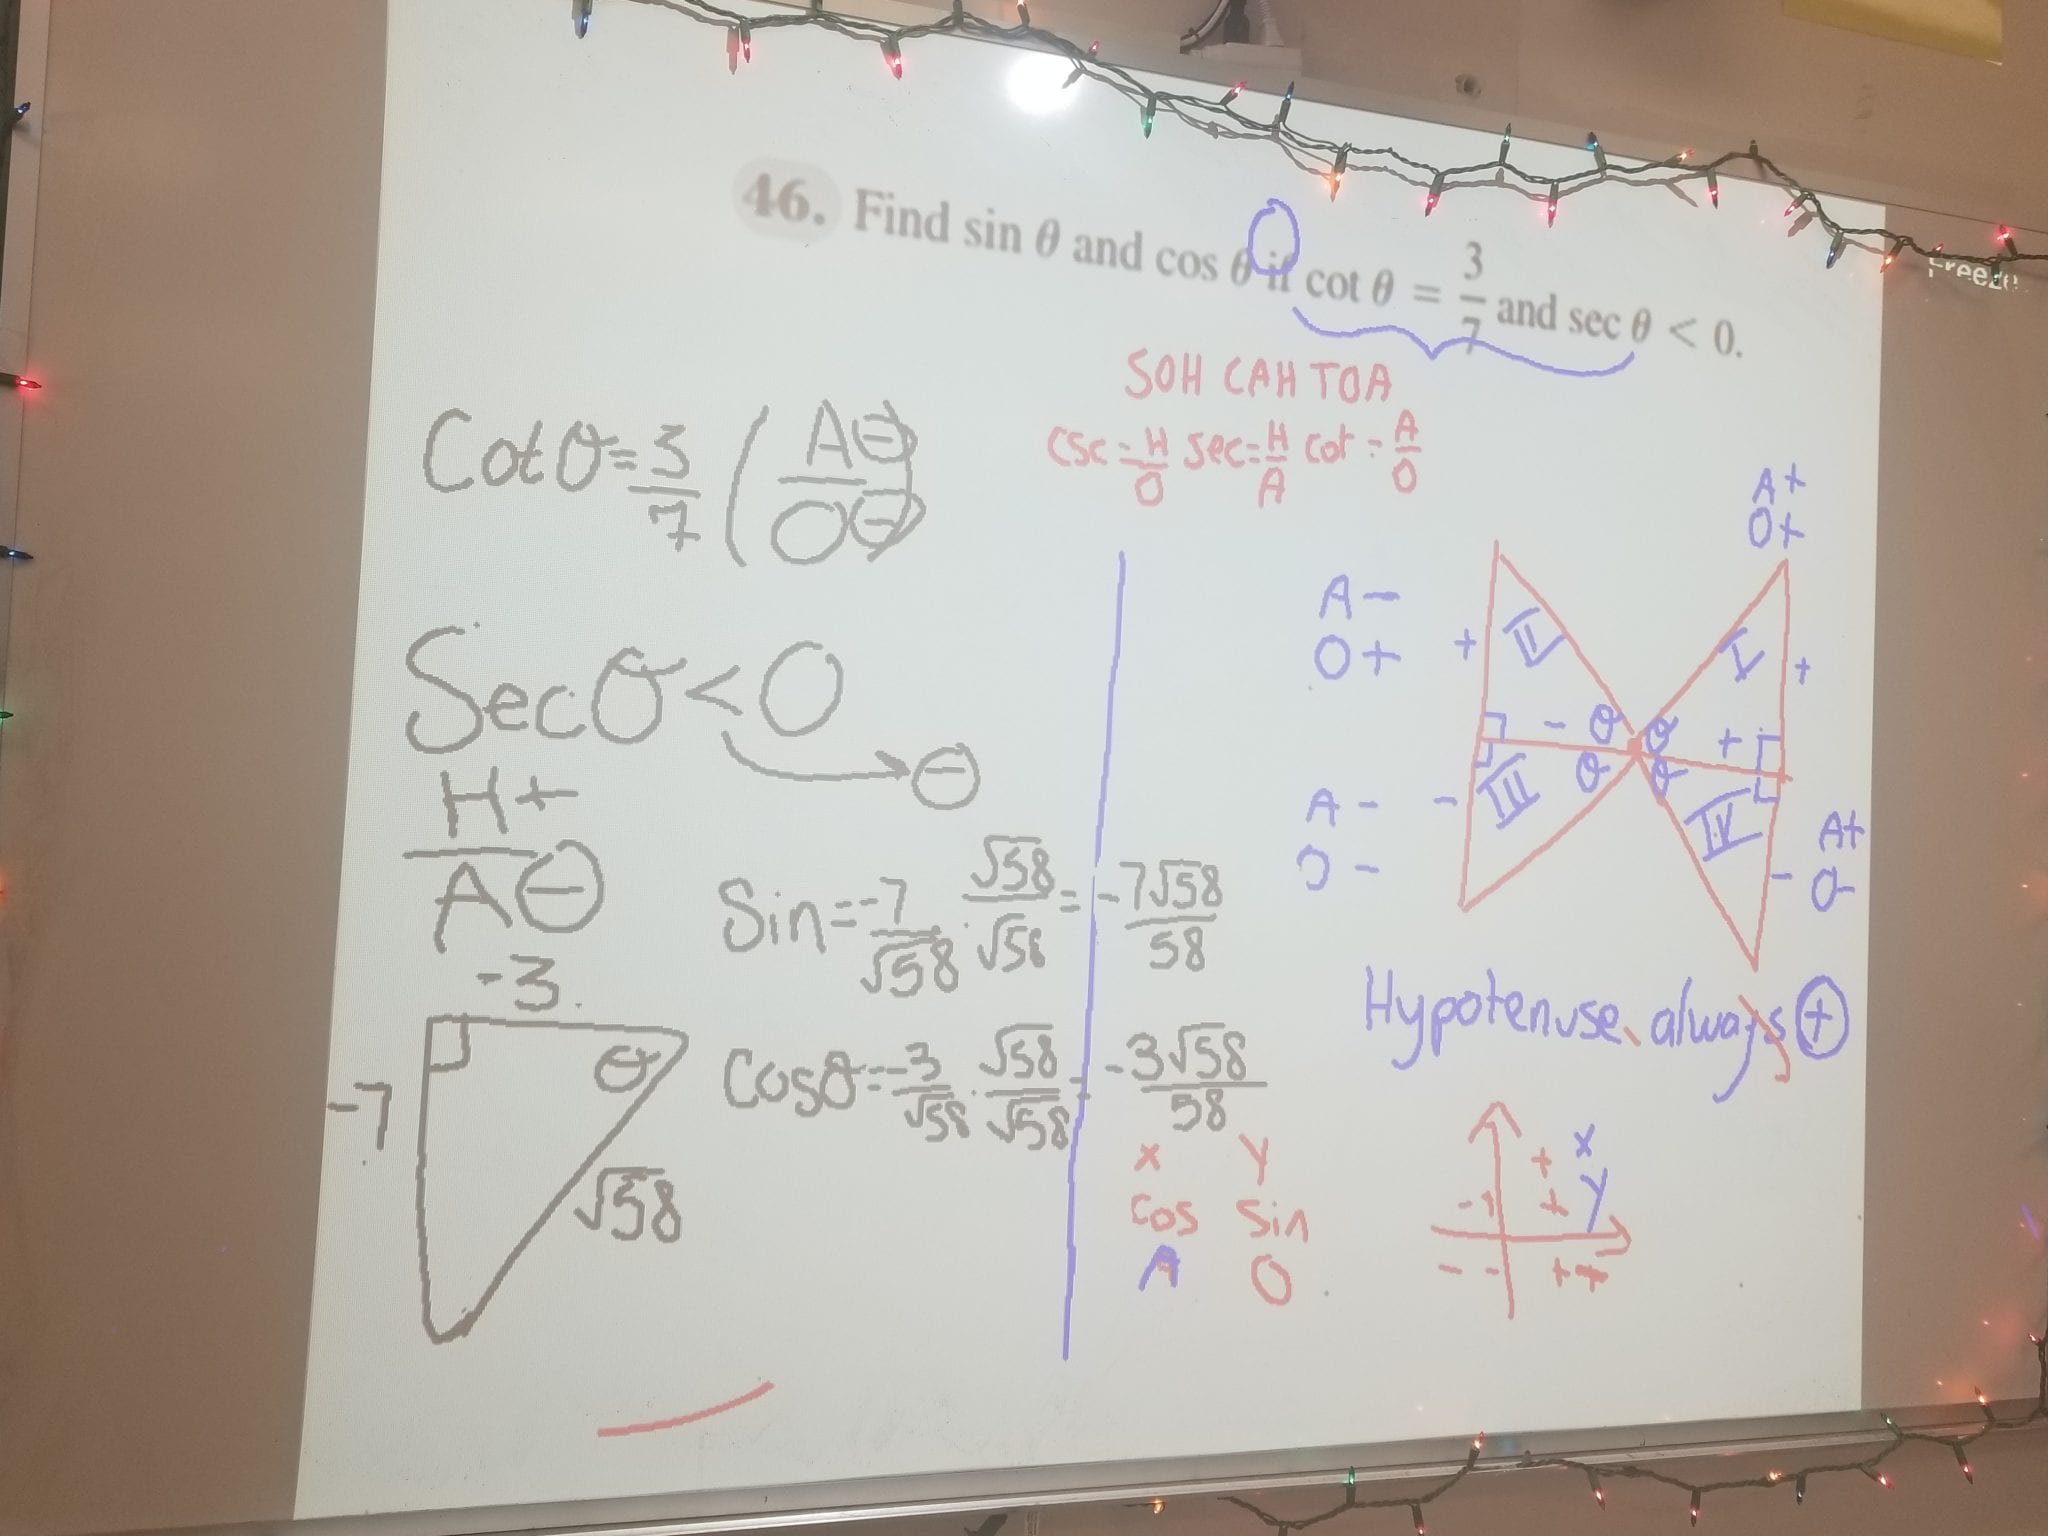 46. Find sin θ and cos θ if cot θ = 3/7 and sec θ < 0.
Freeze
SOH CAH TOA
csc = H/O sec = H/A cot = A/O
Cot θ = 3/7 (A⊖/O⊖)
Sec θ < 0
⊖
H+
A⊖
-3
-7
θ
√58
Sin = -7/√58 · √58/√58 = -7√58/58
Cos θ = -3/√58 · √58/√58 = -3√58/58
x y
cos sin
A O
A+
O+
A -
O +
+ II I +
- θ θ +
θ θ
A - - III IV A+
O - - O-
Hypotenuse always ⊕
+ x
- + + y
- - + +